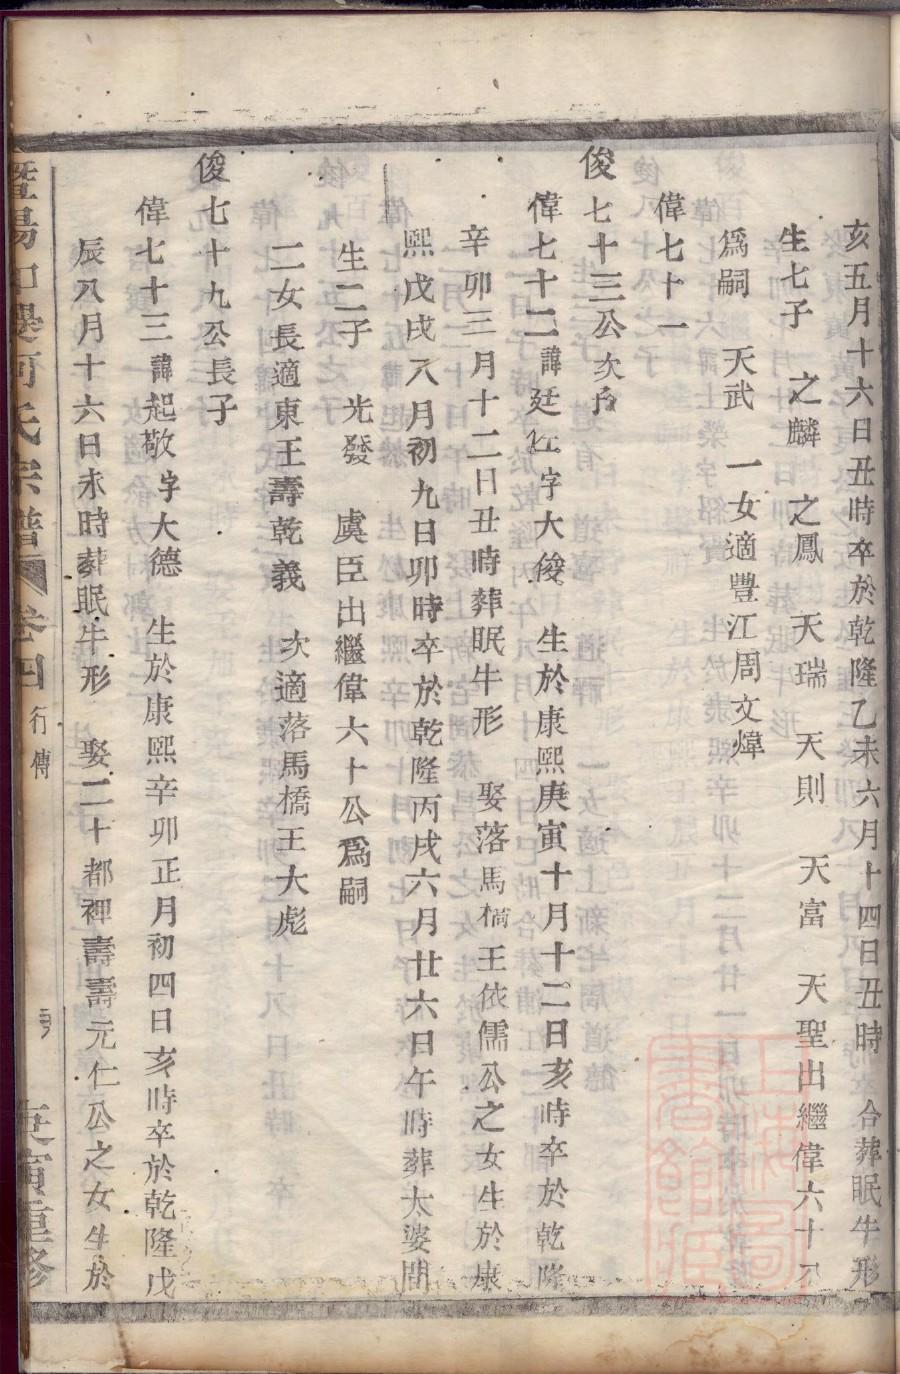 亥五月十六日丑時卒於乾隆乙未六月十四日丑時 合葬眠牛形
生七子 之麟 之鳳 天瑞 天則 天富 天聖出繼偉六十八
爲嗣 天武 一女適豐江周文煒
偉七十一
俊七十三公次子
偉七十二諱廷 字大俊 生於康熙庚寅十月十二日亥時卒於乾隆
辛卯三月十二日丑時葬眠牛形 娶落馬橋王依儒公之女生於康
熙戊戌八月初九日卯時卒於乾隆丙戌六月廿六日午時葬太婆間
生二子 光發 虞臣出繼偉六十公爲嗣
二女長適東王壽乾義 次適落馬橋王大彪
俊七十九公長子
偉七十三諱起敬字大德 生於康熙辛卯正月初四日亥時卒於乾隆戊
辰八月十六日未時葬眠牛形 娶二十都裡壽壽元仁公之女生於
暨陽 何氏宗譜 卷四 行傳 庚寅重修
上海圖書館藏